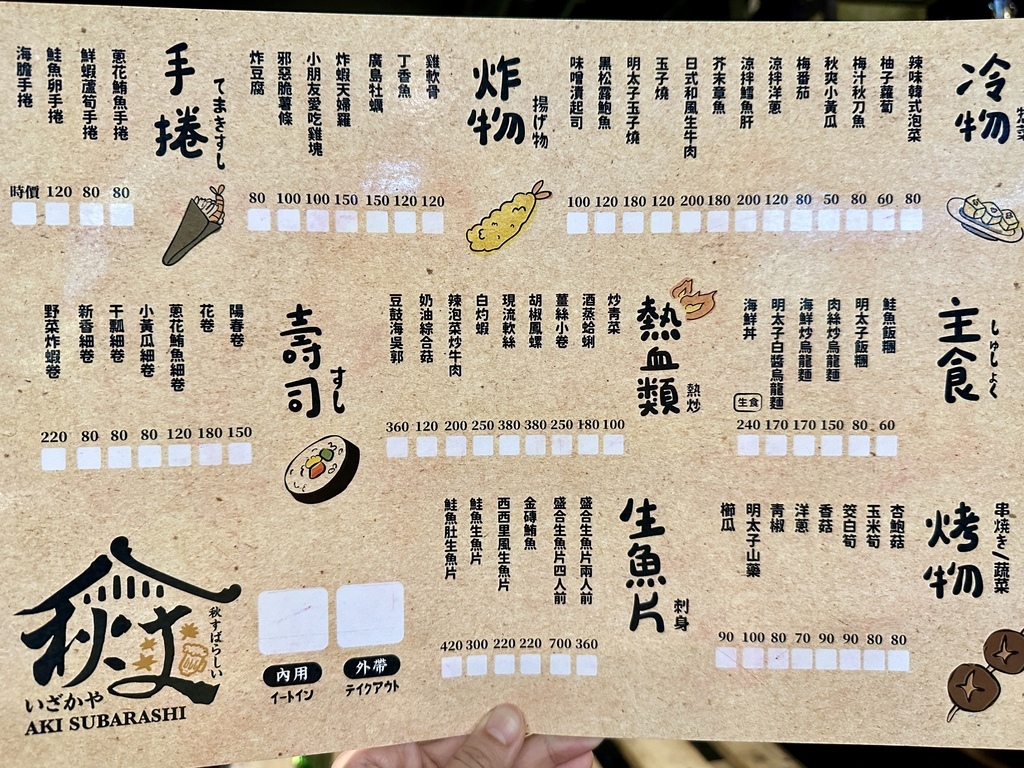 冷物
辣味韓式泡菜 80
柚子蘿蔔 60
梅汁秋刀魚 80
秋爽小黃瓜 50
梅番茄 80
涼拌洋蔥 120
涼拌鱈魚肝 200
芥末章魚 180
日式和風生牛肉 200
玉子燒 120
明太子玉子燒 180
黑松露鮑魚 120
味噌漬起司 100
炸物
揚げ物
雞軟骨 120
丁香魚 120
廣島牡蠣 150
炸蝦天婦羅 150
小朋友愛吃雞塊 100
邪惡脆薯條 100
炸豆腐 80
手捲
てまきすし
蔥花鮪魚手捲 80
鮮蝦蘆筍手捲 80
鮭魚卵手捲 120
海膽手捲 時價
主食
しゅしょく
鮭魚飯糰 60
明太子飯糰 80
肉絲炒烏龍麵 150
海鮮炒烏龍麵 170
明太子白醬烏龍麵 170
海鮮丼 生食 240
熱血類
熱炒
炒青菜 100
酒蒸蛤蜊 180
薑絲小卷 250
胡椒鳳螺 380
現流軟絲 380
白灼蝦 250
辣泡菜炒牛肉 200
奶油綜合菇 120
豆鼓海吳郭 360
壽司
すし
陽春卷 150
花卷 180
蔥花鮪魚細卷 120
小黃瓜細卷 80
干瓢細卷 80
新香細卷 80
野菜炸蝦卷 220
烤物
串燒き/蔬菜
杏鮑菇 80
玉米筍 80
筊白筍 90
香菇 90
洋蔥 70
青椒 80
明太子山藥 100
櫛瓜 90
生魚片
刺身
盛合生魚片兩人前 360
盛合生魚片四人前 700
金磚鮪魚 220
西西里風生魚片 220
鮭魚生魚片 300
鮭魚肚生魚片 420
外帶
テイクアウト
內用
イートイン
秋すばらしい
いざかや
AKI SUBARASHI